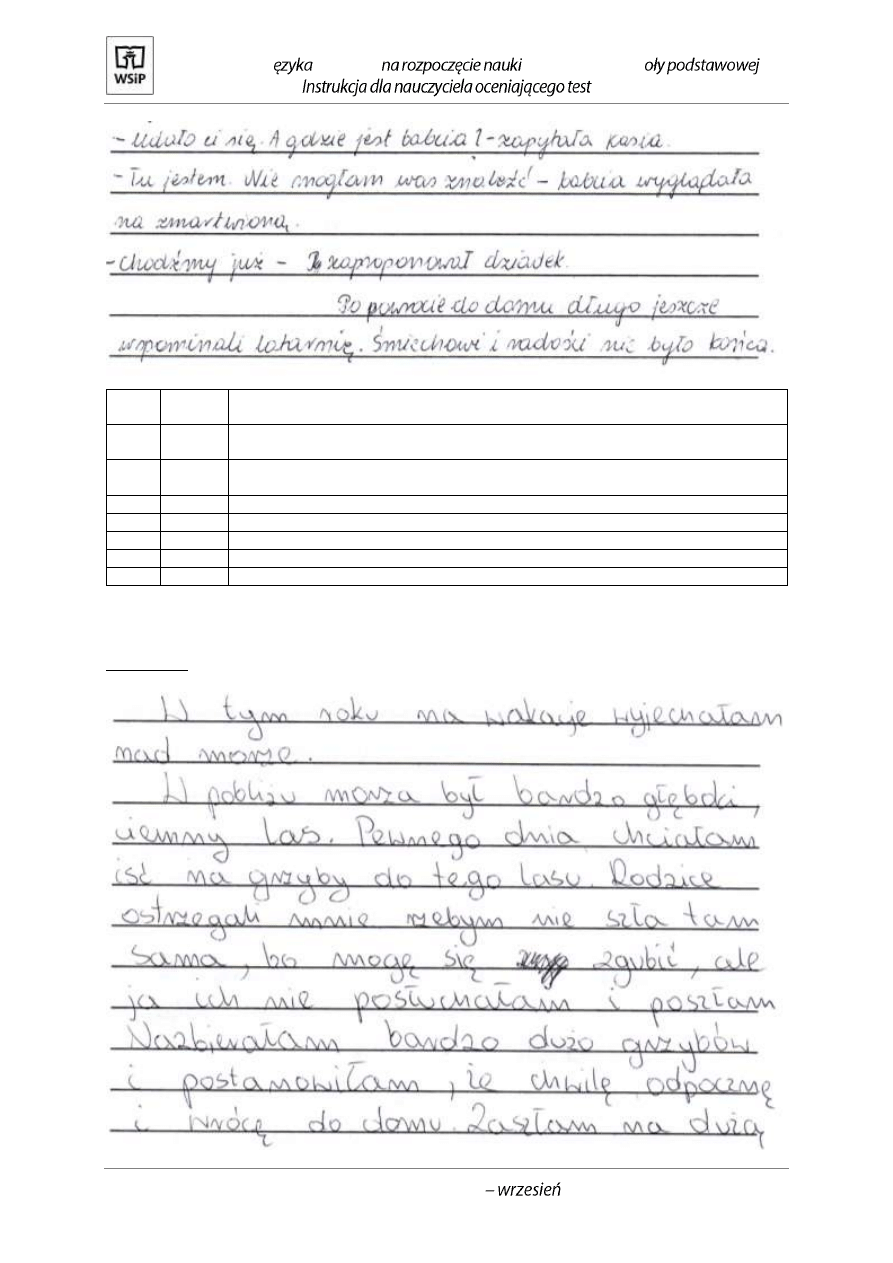 WSiP
ęzyka na rozpoczęcie nauki oły podstawowej
Instrukcja dla nauczyciela oceniającego test
- Udało ci się. A gdzie jest babcia? - zapytała Kasia.
- Tu jestem. Nie mogłam was znaleźć - babcia wyglądała
na zmartwioną.
- Chodźmy już - zaproponował dziadek.
Po powrocie do domu długo jeszcze
wspominali latarnię. Śmiechowi i radości nie było końca.
W tym roku na wakacje wyjechałam
nad morze.
W pobliżu morza był bardzo głęboki,
ciemny las. Pewnego dnia chciałam
iść na grzyby do tego lasu. Rodzice
ostrzegali mnie rzebym nie szła tam
sama, bo mogę się zgubić, ale
ja ich nie posłuchałam i poszłam
Nazbierałam bardzo dużo grzybów
i postanowiłam, że chwilę odpocznę
i wrócę do domu. Zaszłam na dużą
– wrzesień